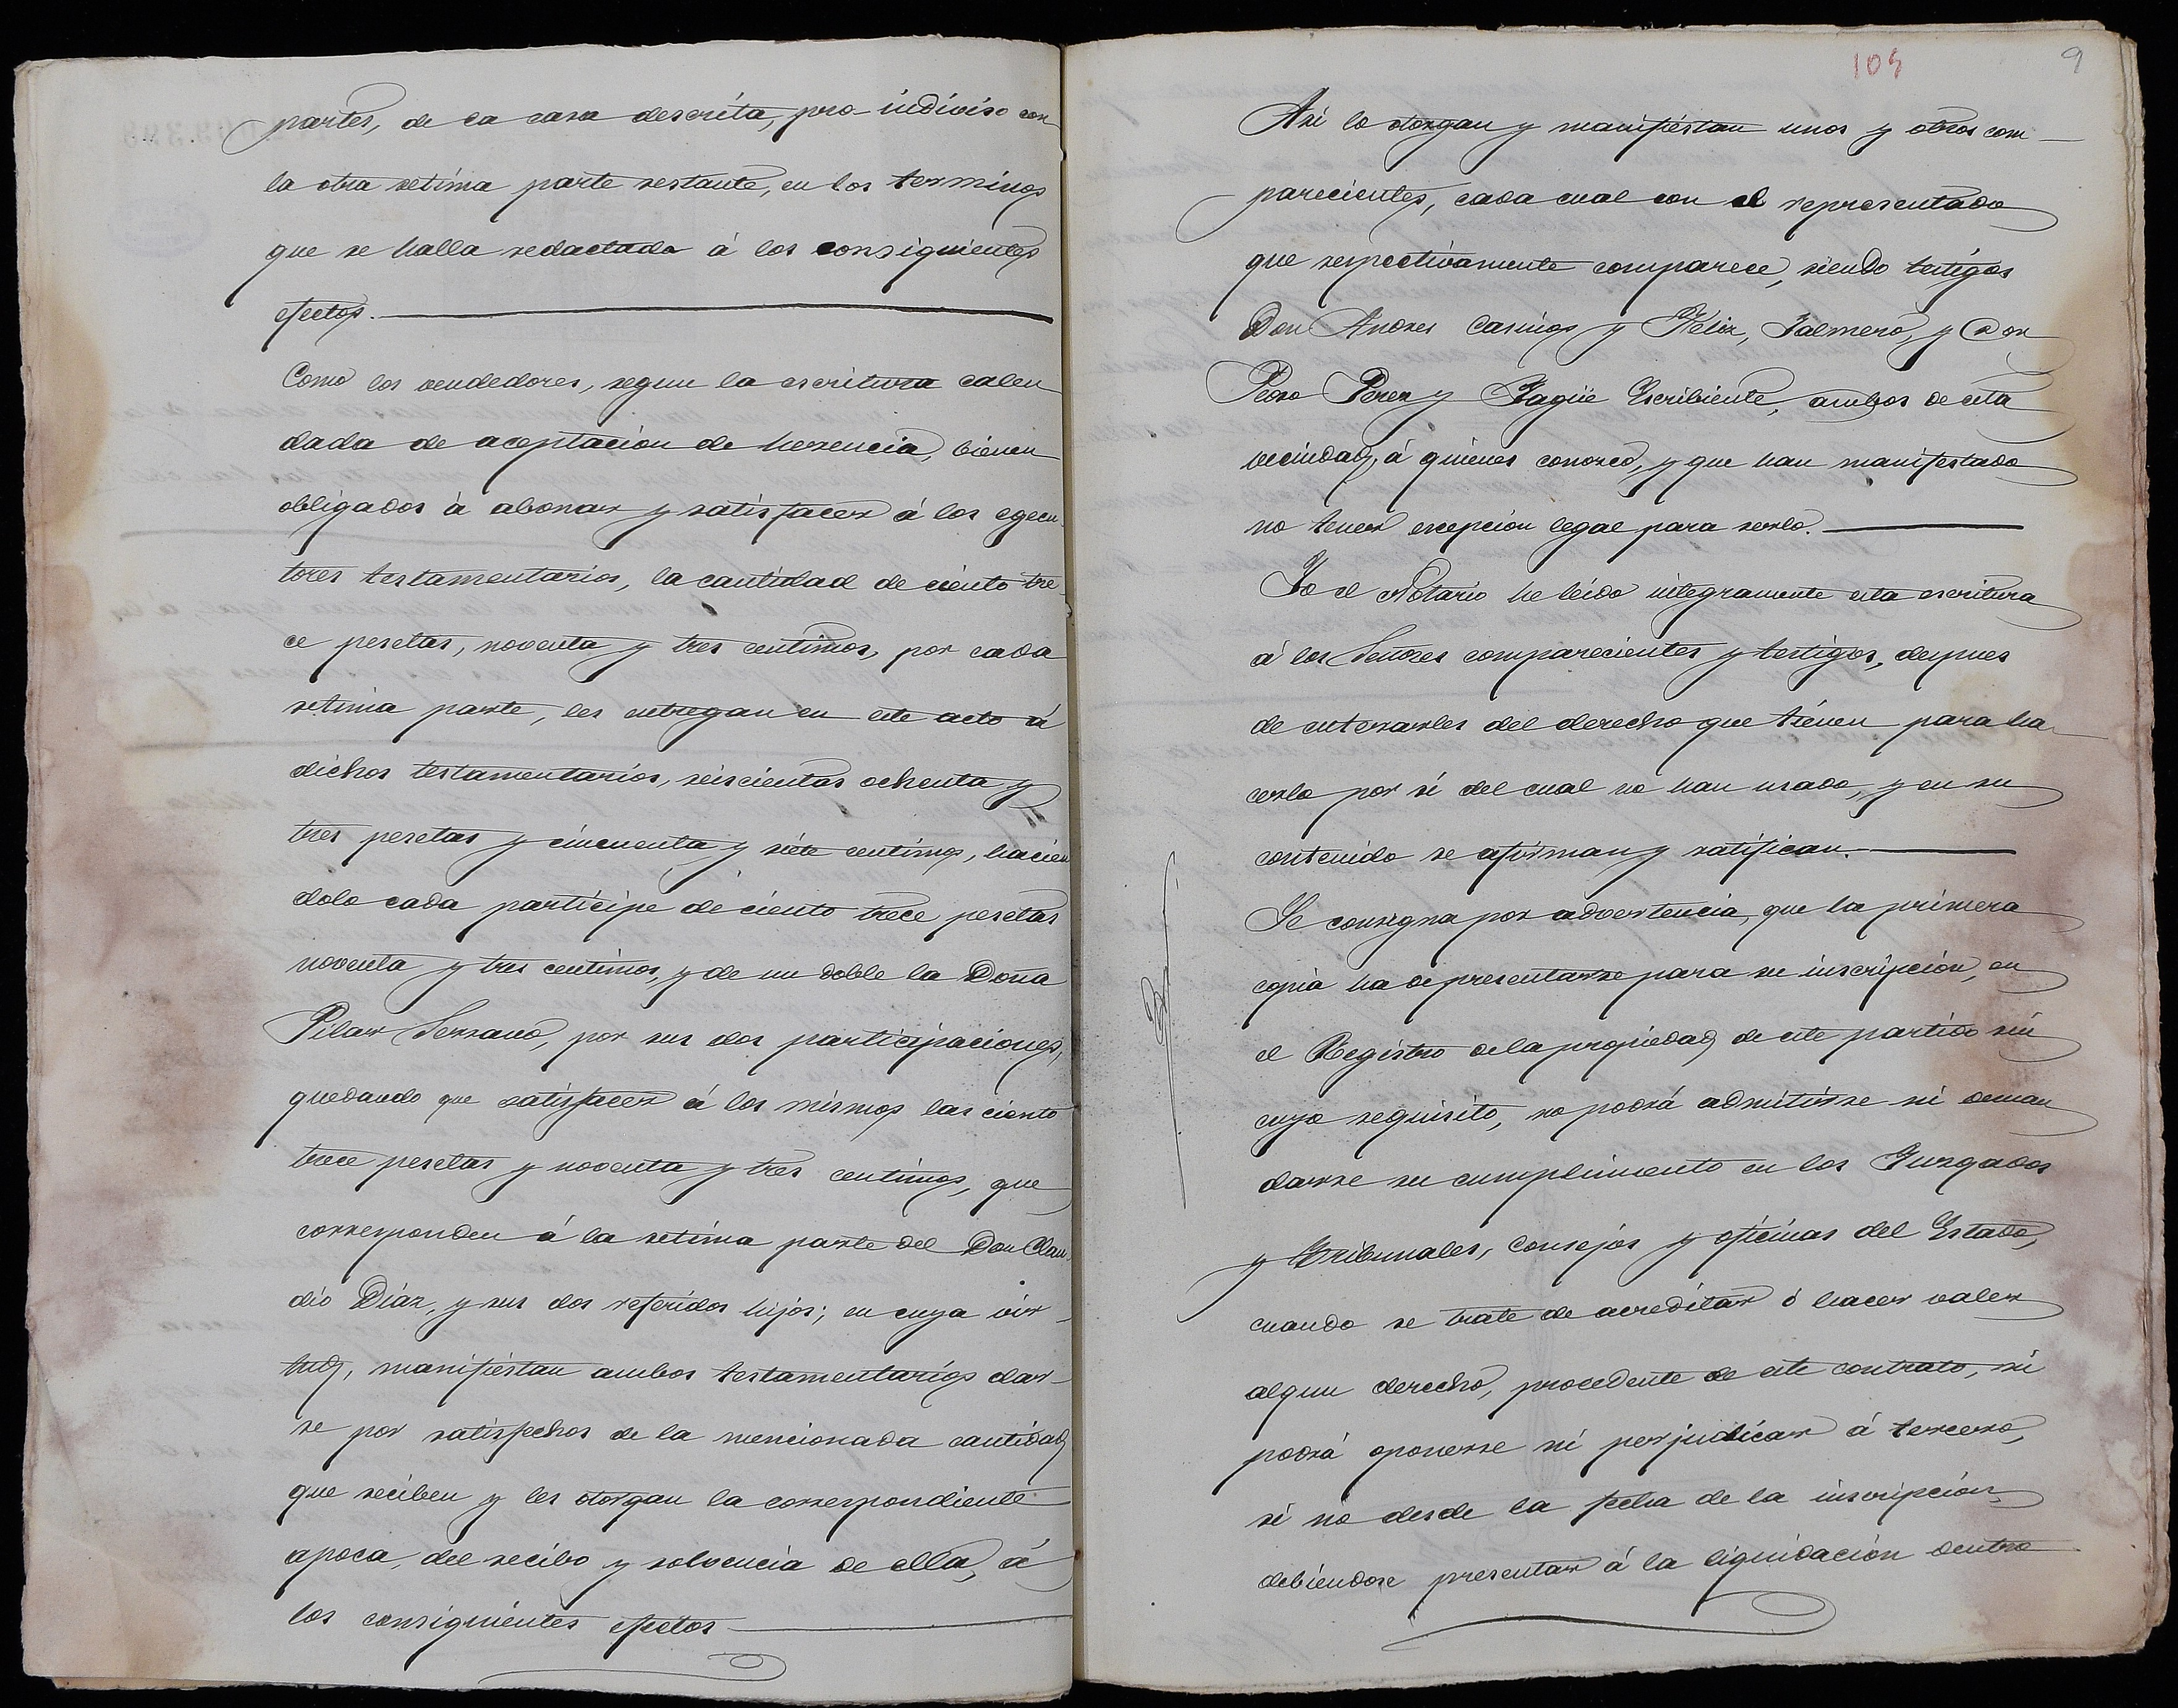 partes, de la casa descrita, pro-indiviso con
la otra setima parte restante, en los terminos
que se halla redactada á los consiguientes
efectos.
Como los vendedores, segun la escritura calen
dada de aceptacion de herencia, vienen
obligados á abonar y satisfacer á los egecu
tores testamentarios, la cantidad de ciento tre-
ce pesetas, noventa y tres centimos, por cada
setima parte, les entregan en este acto á
dichos testamentarios, seiscientas ochenta y
tres pesetas y cincuenta y siete centimos, hacien
dolo cada participe de ciento trece pesetas
noventa y tres centimos, y de un doble la Doña
Pilar Serrano, por sus dos participaciones,
quedando que satisfacer á los mismos las ciento
trece pesetas y noventa y tres centimos, que
corresponden á la setima parte del Don Clau
dio Diaz, y sus dos referidos hijos; en cuya vir-
tud, manifiestan ambos testamentarios dar-
se por satisfechos de la mencionada cantidad
que reciben y les otorgan la correspondiente
apoca, del recibo y solvencia de ella, á
los consiguientes efectos
109 9
Asi lo otorgan y manifiestan unos y otros com-
parecientes, cada cual con el representado
que respectivamente comparece, siendo testigos
Don Andres Casinos y Feliz, Jalmero, y Don
Pedro Perez y Yagüe Escribiente, ambos de esta
vecindad, á quienes conozco, y que han manifestado
no tener escepcion legal para serlo.
Yo el Notario he leido integramente esta escritura
á los Señores comparecientes y testigos, depues
de enterarles del derecho que tienen para ha-
cerlo por si del cual no han usado, y en su
contenido se afirman y ratifican.
Se consigna por advertencia, que la primera
copia ha de presentarse para su inscripcion, en
el Registro de la propiedad de este partido sin
cuyo requisito, no podrá admitirse ni deman
darse su cumplimiento en los Juzgados
y Tribunales, Consejos y oficinas del Estado,
cuando se trate de acreditar ó hacer valer
algun derecho, procedente de este contrato, ni
podrá oponerse ni perjudicar á tercero,
si no desde la fecha de la inscripcion,
debiendose presentar á la liquidacion dentro